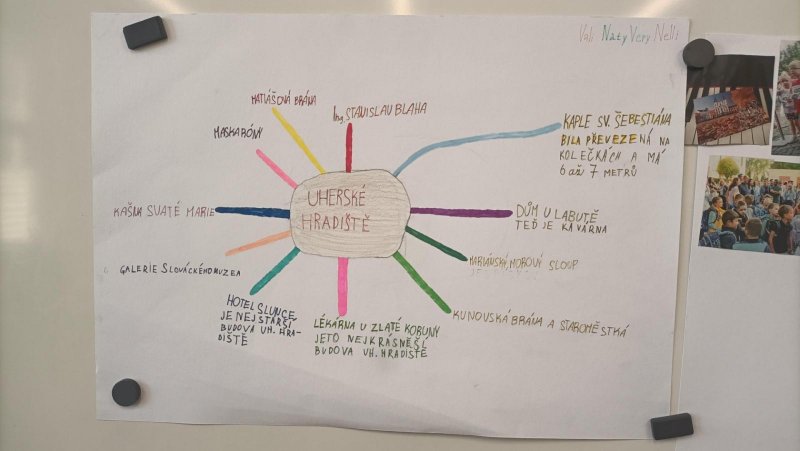 Vali Naty Very Nelli
MATIÁŠOVÁ BRÁNA
Ing. STANISLAV BLAHA
KAPLE SV. ŠEBESTIÁNA
BILA PŘEVEZENÁ NA
KOLEČKÁCH A MÁ
6 až 7 METRŮ
MASKARÓNY
UHERSKÉ
HRADIŠTĚ
KAŠNA SVATÉ MARIE
DŮM U LABUTĚ
TEĎ JE KAVÁRNA
GALERIE SLOVÁCKÉHO MUZEA
MARIÁNSKÝ MOROVÝ SLOUP
HOTEL SLUNCE
JE NEJSTARŠÍ
BUDOVA UH. HRA-
DIŠTĚ
LÉKÁRNA U ZLATÉ KORUNY
JETO NEJKRÁSNĚŠÍ
BUDOVA UH. HRADIŠTĚ
KUNOVSKÁ BRÁNA A STAROMĚSTKÁ